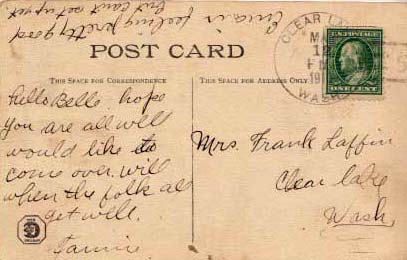 Erma is feeling pretty good
but can't set up yet.
POST CARD
CLEAR LA
WASH
U.S. POSTAGE
ONE CENT
THIS SPACE FOR CORRESPONDENCE
THIS SPACE FOR ADDRESS ONLY
Hello Bello, hope
you are all well
would like to
come over. will
when the folk al
get well.
Mrs. Frank Laffin
Clear lake
Wash.